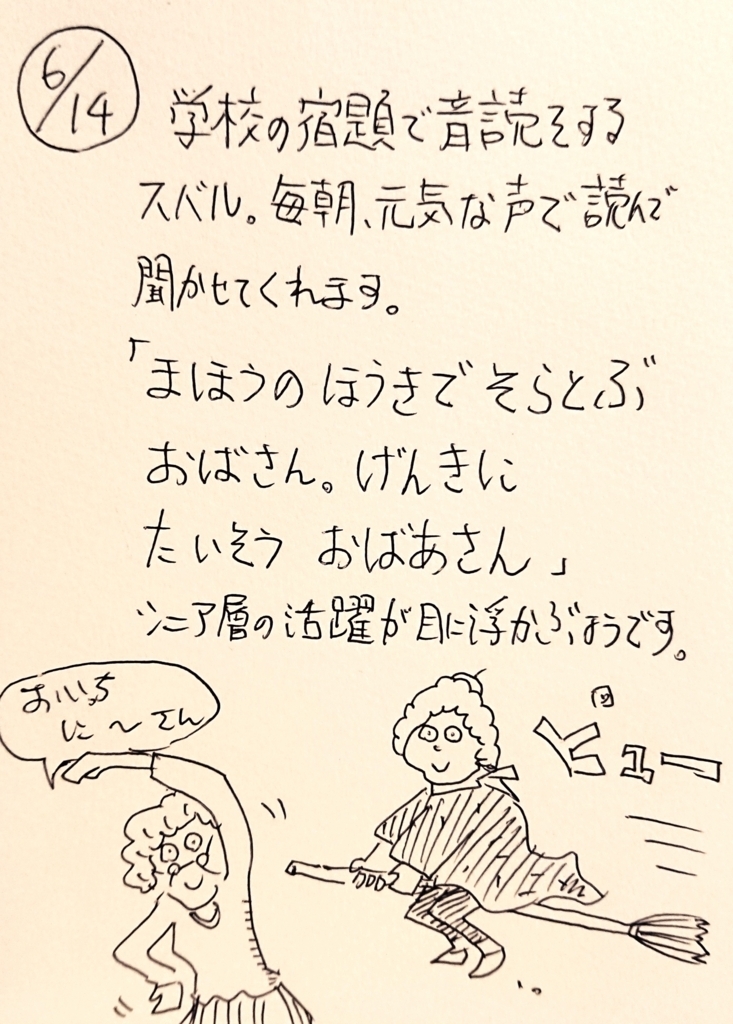 6/14
学校の宿題で音読をする
スバル。毎朝、元気な声で読んで
聞かせてくれます。
「まほうの ほうきで そらとぶ
おばさん。げんきに
たいそう おばあさん」
シニア層の活躍が目に浮かぶようです。
おいっち
に〜さん
ピュー